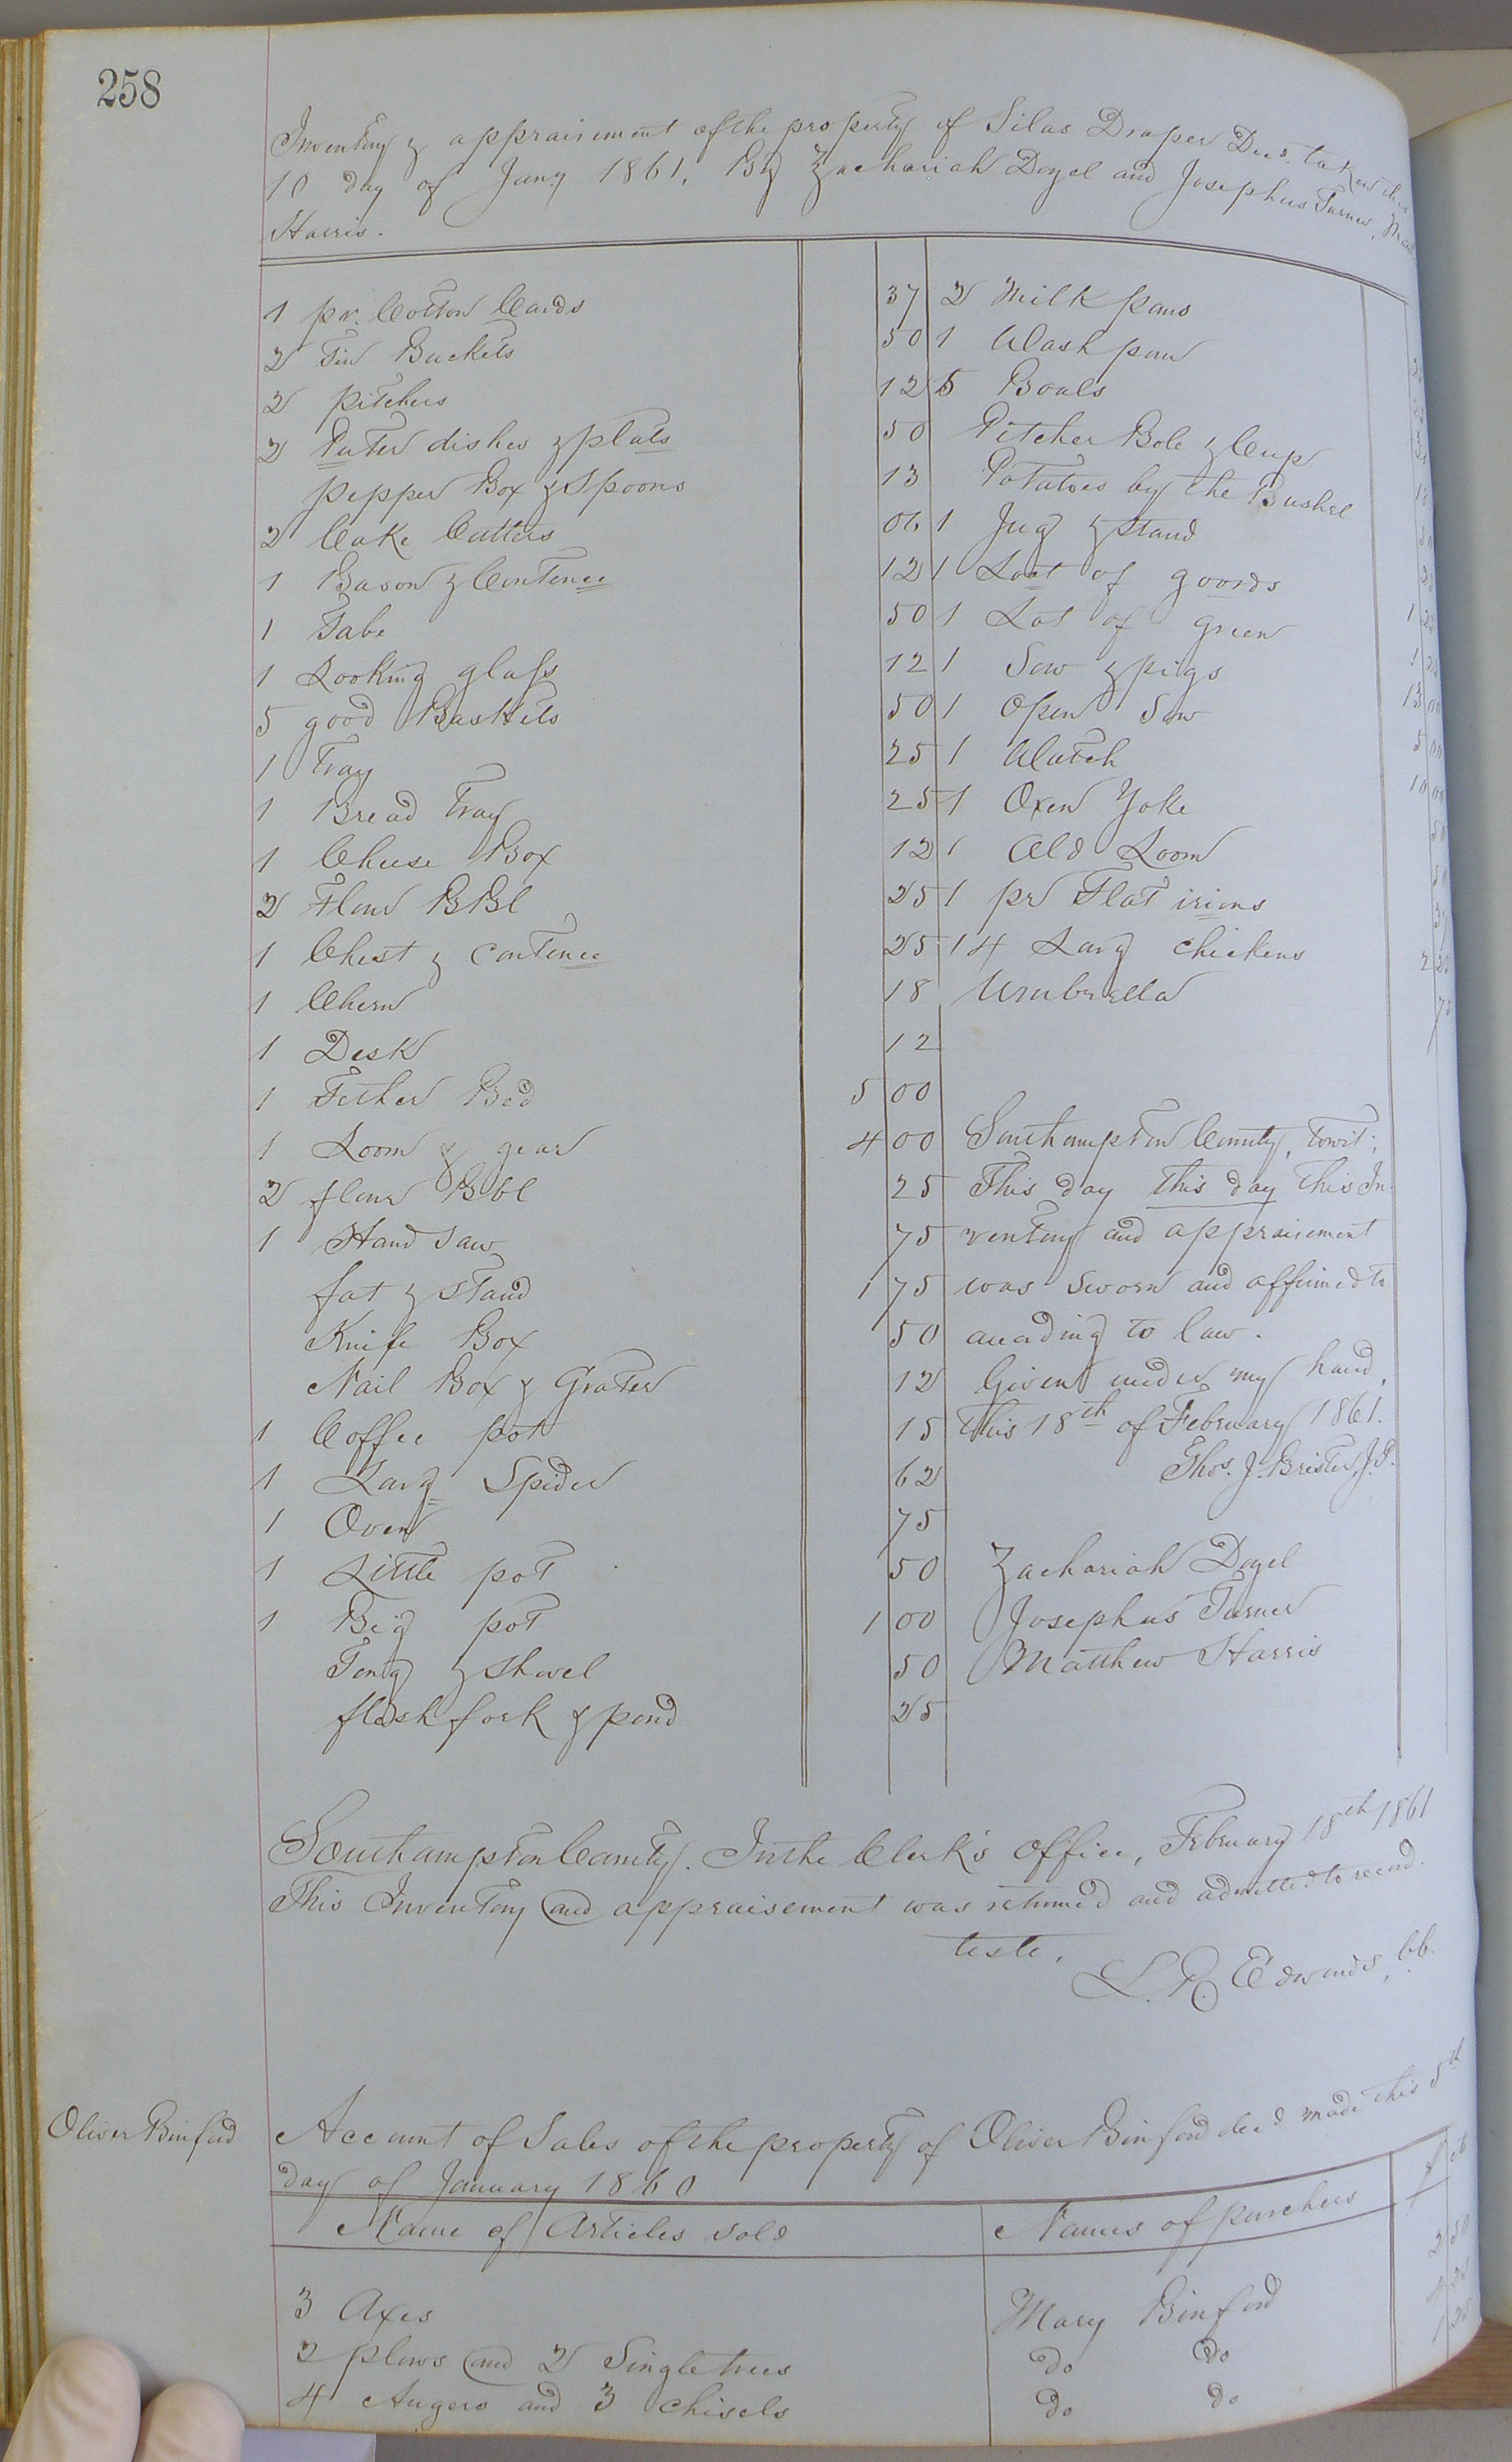 258
Inventory & appraisement of the property of Silas Draper Decd. taken this
10 day of Jany 1861, By Zachariah Doyel and Josephus Turner,
Harris.
1 pr. Cotton Cards 37
2 Tin Buckets 50
2 pitchers 12
2 Puter dishes & plats 50
pepper Box & Spoons 13
2 Cake Cutters 06
1 Bason & Contence 12
1 Tabe 50
1 Looking glass 12
5 good Baskets 50
1 Tray 25
1 Bread Tray 25
1 Cheese Box 12
2 Flour BBl 25
1 Chest & contence 25
1 Chern 18
1 Desk 12
1 Fether Bed 5 00
1 Loom & gear 4 00
2 flour Bbl 25
1 Hand saw 75
fat & stand 1 75
Knife Box 50
Nail Box & Grater 12
1 Coffee pot 15
1 Larg Spider 62
1 Oven 75
1 Little pot 50
1 Big pot 1 00
Tong & shovel 50
flesh fork & pend 25
2 Milk pans
1 Wash pan
5 Boals
Pitcher Bole & Cup
Potatoes by the Bushel
1 Jug & stand
1 Loat of goords
1 Lot of green 1
1 Sow & pigs 1
1 Open Sow 13 00
1 Watch 5 00
1 Oxen Yoke 10 00
1 Old Loom 50
1 pr Flat irions 50
14 Larg chickens 37
Umbrella 2 25
75
Southampton County, towit:
This day this day This In-
ventory and appraisement
was sworn and affirmed to
according to law.
Given under my hand,
this 18th of February 1861.
Thos. J. Brister, J.P.
Zachariah Doyel
Josephus Turner
Matthew Harris
Southampton County. In the Clerk's office, February 18th 1861
This Inventory and appraisement was returned and admitted to record.
teste,
L. R. Edwards, C.C.
Oliver Binford
Account of Sales of the property of Oliver Binford decd made this 5th
day of January 1860
Name of Articles sold Names of purchers $ cts
3 Axes Mary Binford 2 50
2 plows and 2 Singletrees do do
4 Augers and 3 chisels do do